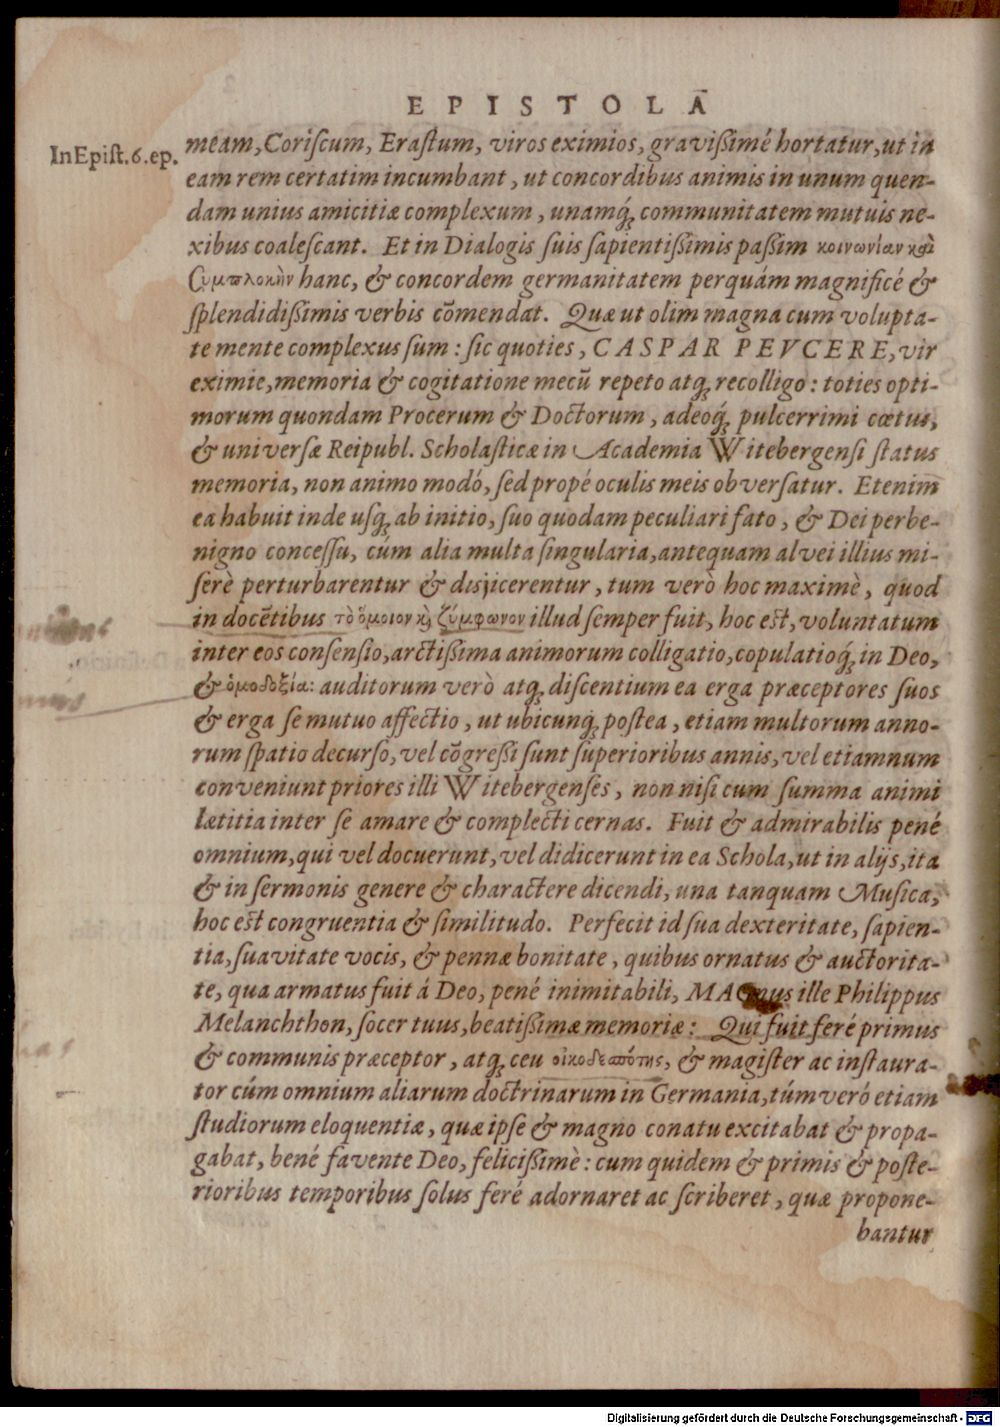 EPISTOLA
In Epist. 6. ep.
meam, Coriſcum, Eraſtum, viros eximios, graviſſimé hortatur, ut in
eam rem certatim incumbant, ut concordibus animis in unum quen-
dam unius amicitiæ complexum, unamq́ꝫ communitatem mutuis ne-
xibus coaleſcant. Et in Dialogis ſuis ſapientiſſimis paſſim κοινωνίαν καὶ
ϲυμπλοκὴν hanc, & concordem germanitatem perquám magnificé &
ſplendidiſſimis verbis cōmendat. Quæ ut olim magna cum volupta-
te mente complexus ſum: ſic quoties, CASPAR PEVCERE, vir
eximie, memoria & cogitatione mecū repeto atqꝫ recolligo: toties opti-
morum quondam Procerum & Doctorum, adeoq́ꝫ pulcerrimi cœtus,
& univerſæ Reipubl. Scholaſticæ in Academia Witebergenſi ſtatus
memoria, non animo modó, ſed propé oculis meis obverſatur. Etenim
ea habuit inde uſqꝫ ab initio, ſuo quodam peculiari fato, & Dei perbe-
nigno conceſſu, cúm alia multa ſingularia, antequam alvei illius mi-
ſerè perturbarentur & disjicerentur, tum verò hoc maximè, quod
in docētibus τὸ ὅμοιον κὶ ζύμφωνον illud ſemper fuit, hoc eſt, voluntatum
inter eos conſenſio, arctiſſima animorum colligatio, copulatioq́ꝫ in Deo,
& ὁμοδοξία: auditorum verò atqꝫ diſcentium ea erga præceptores ſuos
& erga ſe mutuo affectio, ut ubicunq́ꝫ poſtea, etiam multorum anno-
rum ſpatio decurſo, vel cōgreſſi ſunt ſuperioribus annis, vel etiamnum
conveniunt priores illi Witebergenſes, non niſi cum ſumma animi
lætitia inter ſe amare & complecti cernas. Fuit & admirabilis pené
omnium, qui vel docuerunt, vel didicerunt in ea Schola, ut in alijs, ita
& in ſermonis genere & charactere dicendi, una tanquam Muſica,
hoc eſt congruentia & ſimilitudo. Perfecit id ſua dexteritate, ſapien-
tia, ſuavitate vocis, & pennæ bonitate, quibus ornatus & auctorita-
te, qua armatus fuit á Deo, pené inimitabili, MAGnus ille Philippus
Melanchthon, ſocer tuus, beatiſſimæ memoriæ: Qui fuit feré primus
& communis præceptor, atqꝫ ceu οἰκοδεσπότης, & magiſter ac inſtaura-
tor cúm omnium aliarum doctrinarum in Germania, túm veró etiam
ſtudiorum eloquentiæ, quæ ipſe & magno conatu excitabat & propa-
gabat, bené favente Deo, feliciſſimè: cum quidem & primis & poſte-
rioribus temporibus ſolus feré adornaret ac ſcriberet, quæ propone-
bantur
Digitalisierung gefördert durch die Deutsche Forschungsgemeinschaft - DFG